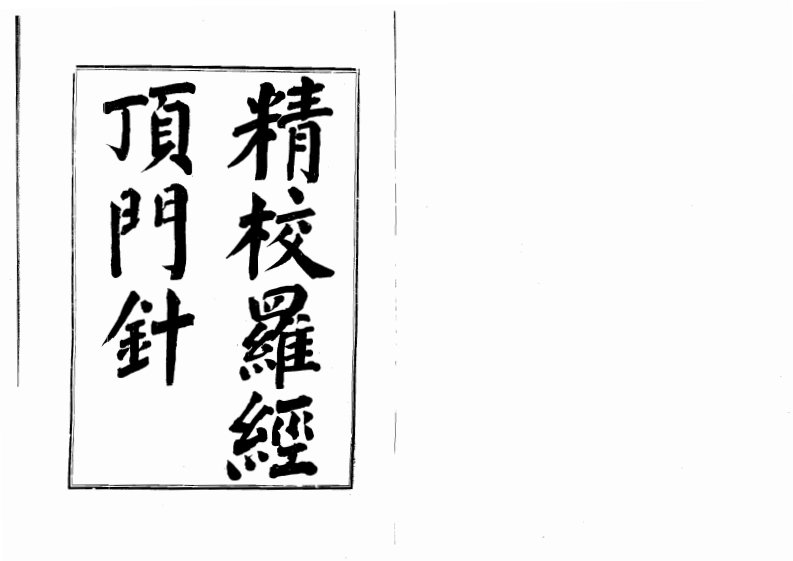 精校羅經
頂門針